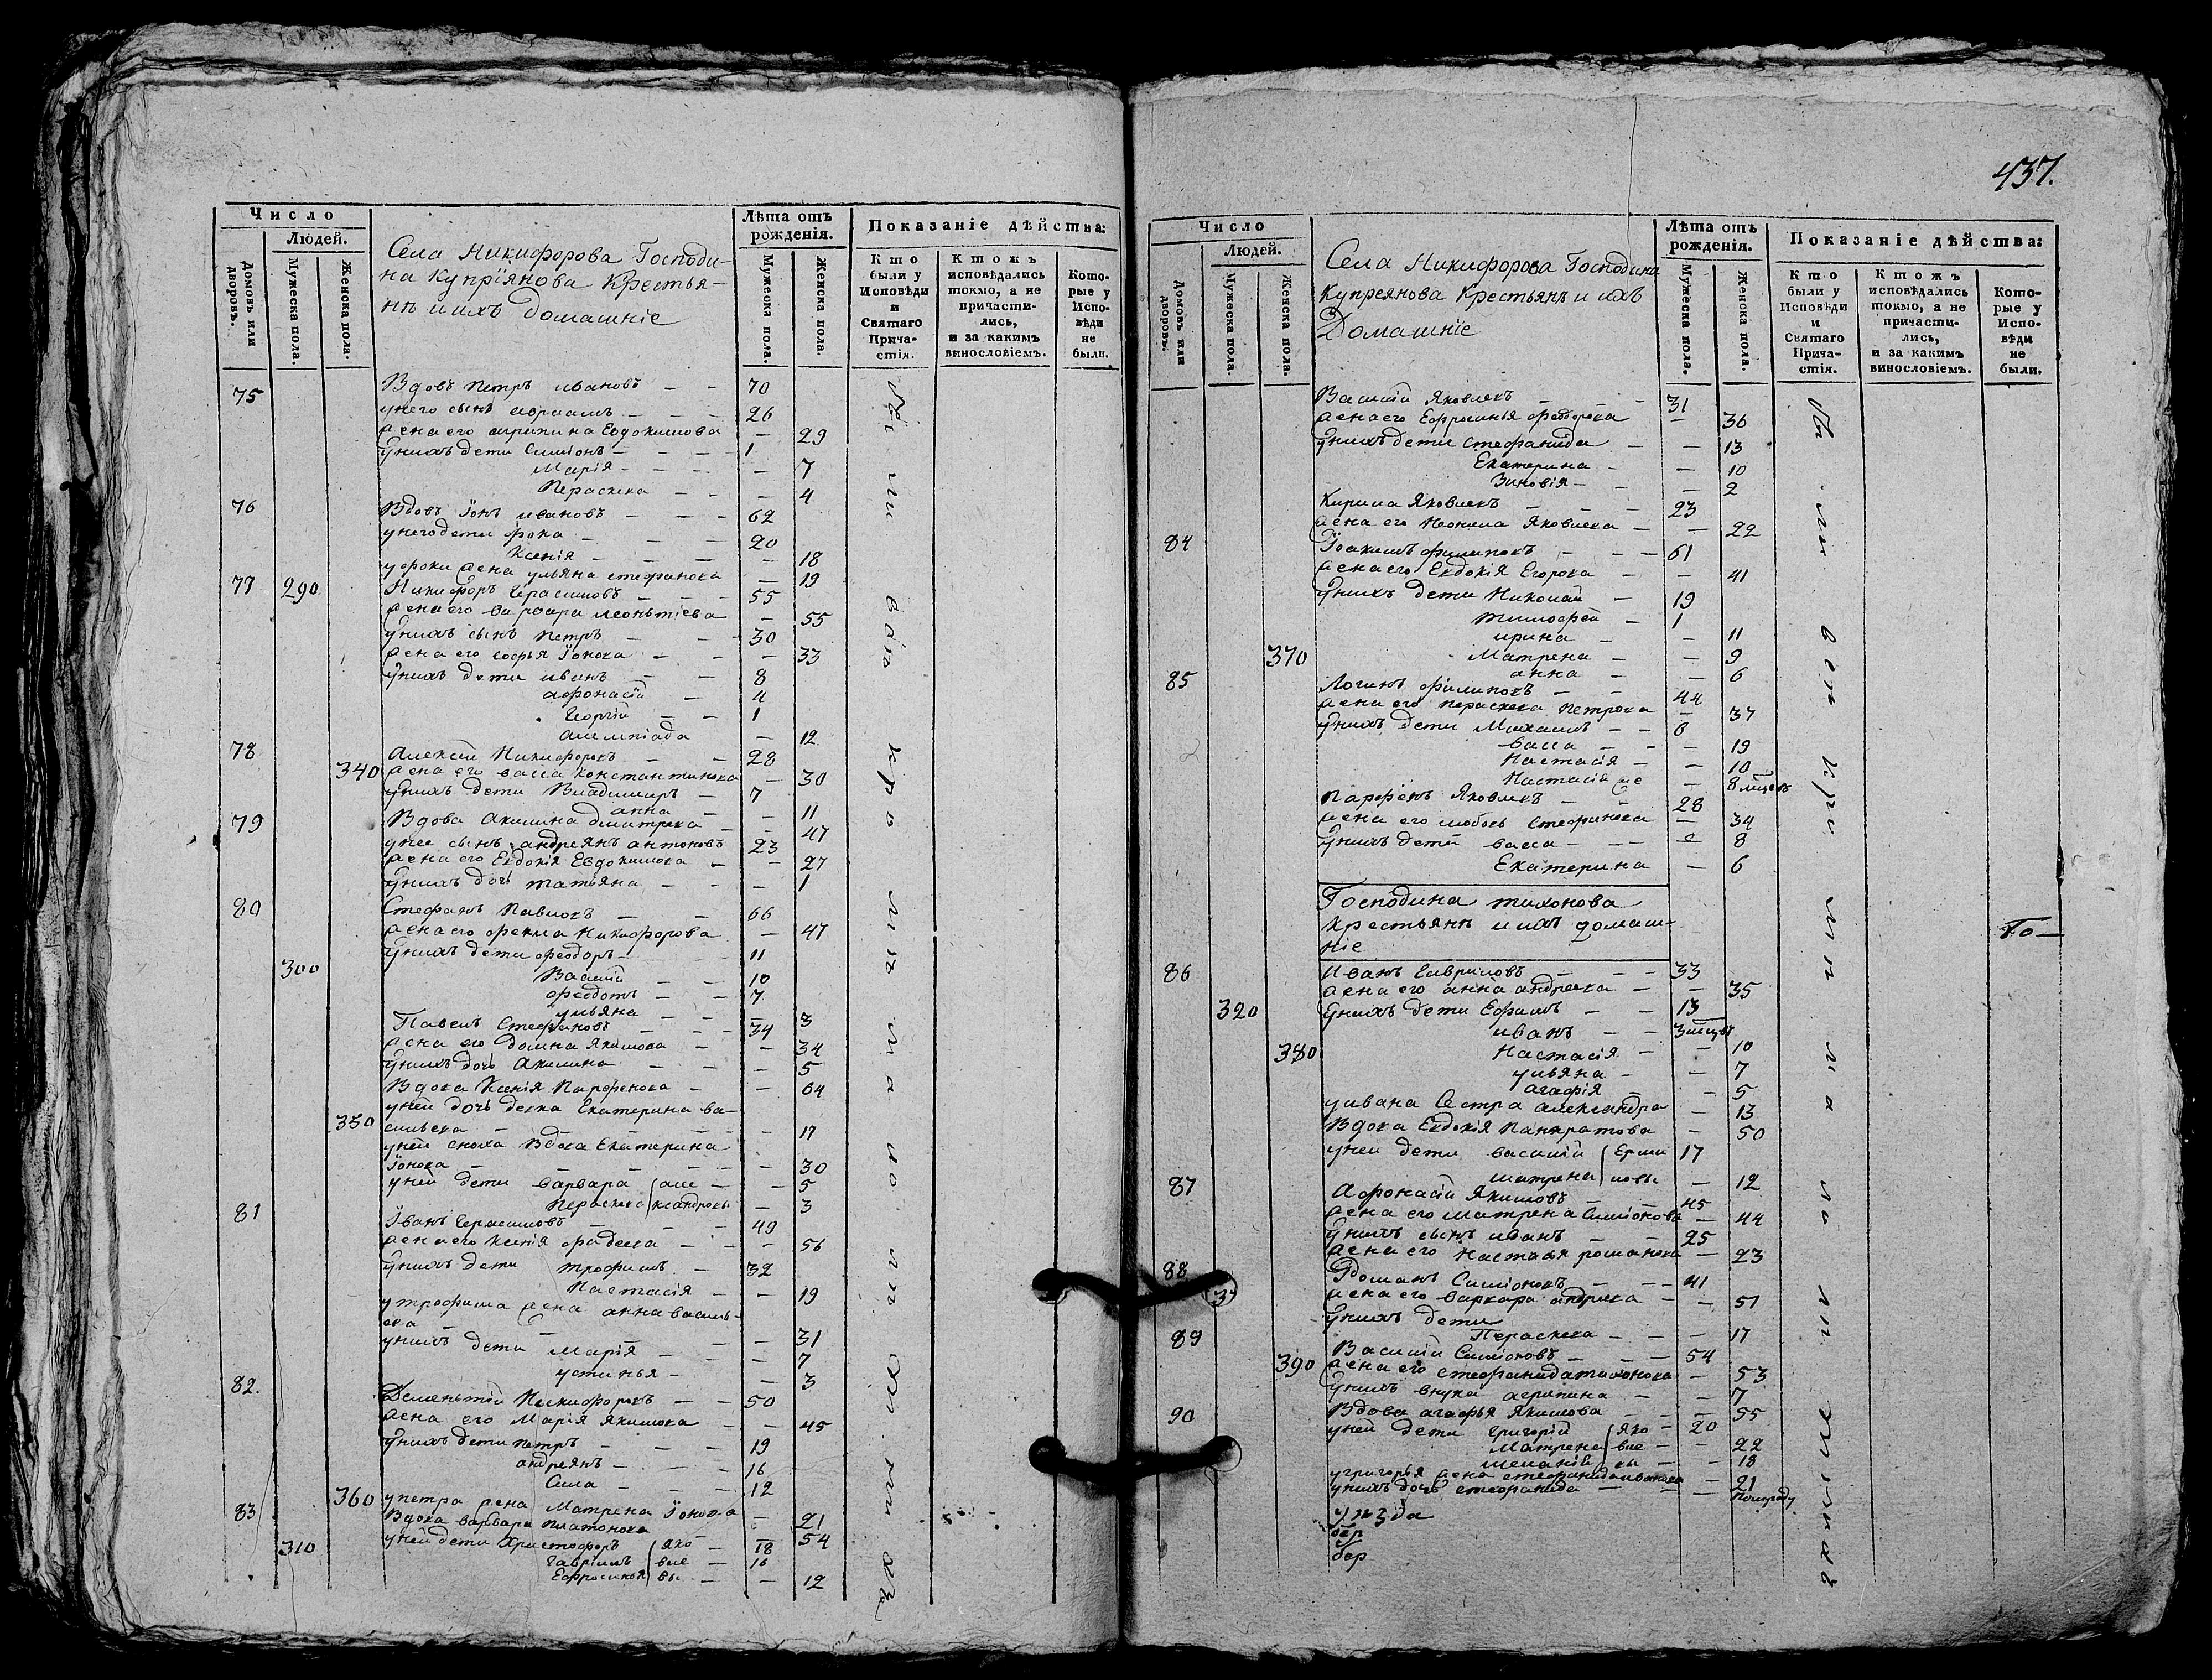 437.
Число
Людей.
Домовъ или дворовъ.
Мужеска пола.
Женска пола.
Села Никифорова Господи-
на Купрiянова Крестья-
нъ и ихъ домашнiе
Лѣта отъ рожденiя.
Мужеска пола.
Женска пола.
Показанiе дѣйства:
Кто были у Исповѣди и Святаго Прича-стiя.
Ктожъ исповѣдались токмо, а не причасти-лись, и за какимъ винословiемъ.
Кото-рые у Испо-вѣди не были.
75 Вдовъ Петръ ивановъ — — 70
унего сынъ — — 26
жена его Евдокимова — 29
унихъ дети Симiонъ — — 1
Марiя — — — 7
Пераскева — — — 4
76 Вдовъ Iонъ ивановъ — — — 62
унего дети фока — — — 20
Ксенiя — — — — 18
у фоки жена ульяна стефанова — 19
77 290 Никифоръ Герасимовъ — — 55
жена его варвара леонътiева — 55
унихъ сынъ Петръ — — 30
жена его софья Iонова — — 33
унихъ дети иванъ — — 8
афонасiй — 4
Георгiй — — 1
алимпiада — 12
78 Алексей Никифоровъ — — 28
340 жена его васса константинова — 30
унихъ дети Владимиръ — 7
анна — — 11
79 Вдова Акилина дмитрева — — 47
унее сынъ андреянъ антоновъ 23
жена его Евдокiя Евдокимова — — 27
унихъ дочь татьяна — — — 1
80 Стефанъ Павловъ — — 66
жена его фекла Никифорова — 47
унихъ дети феодоръ — 11
300 Василiй — — 10
феодотъ — — 7
ульяна — — — 3
Павелъ Стефановъ — — — 34
жена его домна Якимова — — 34
унихъ дочь Акилина — — — 5
Вдова Ксенiя Парфенова — — 64
уней дочь девка Екатерина ва-
350 сильева — — — — 17
уней сноха Вдова Екатерина
Iонова — — — — — 30
уней дети варвара (але — — 5
Пераскева (ксандровы — 3
81 Iванъ Герасимовъ — — — 49
жена его Ксенiя фадеева — — — 56
унихъ дети трофимъ — 32
Настасiя — — 19
утрофима жена анна василь-
ева — — — — 31
унихъ дети Марiя — — — 7
устинья — — 3
82. Дементiй Никифоровъ — — 50
жена его Марiя Якимова — — 45
унихъ дети Петръ — — — 19
андреянъ — — — 16
Сила — — — 12
360 упетра жена Матрена Iонова — 21
83 Вдова варвара Платонова 54
310 уней дети Христофоръ (яко — 18
Гаврiилъ (вле — 16
Ефросинья (вы — — 12
Число
Людей.
Домовъ или дворовъ.
Мужеска пола.
Женска пола.
Села Никифорова Господина
Купреянова Крестьянъ и ихъ
Домашнiе
Лѣта отъ рожденiя.
Мужеска пола.
Женска пола.
Показанiе дѣйства:
Кто были у Исповѣди и Святаго Прича-стiя.
Ктожъ исповѣдались токмо, а не причасти-лись, и за какимъ винословiемъ.
Кото-рые у Испо-вѣди не были.
Василiй Яковлевъ — — — 31
жена его Ефросинья феодорова — 36
унихъ дети Стефанида — — 13
Екатерина — — 10
Зиновiя — — — 2
Кирила Яковлевъ — — — 23
жена его Неонила Яковлева — — 22
84 Iоакимъ филиповъ — — — 61
жена его Евдокiя Егорова — — 41
унихъ дети Николай — 19
тимофей — 1
ирина — — 11
370 Матрена — — 9
анна — — 6
85 Логинъ филиповъ — — 44
жена его пераскева Петрова — 37
унихъ дети Михаилъ — — 6
васса — — — 19
Настасiя — — 10
Настасiя же — 8 мцовъ
Парфенъ Яковлевъ — — 28
жена его любовь Стефанова — 34
унихъ дети васса — — — 8
Екатерина — 6
Господина тихонова
крестьянъ и ихъ домаш-
нiе
86 Иванъ Гавриловъ — — — 33
жена его анна андреева — — 35
320 унихъ дети Ефимъ — — 13
иванъ — — 3 мцовъ
380 Настасiя — — 10
ульяна — — 7
агафiя — — 5
уивана Сестра александра — 13
Вдова Евдокiя Панкратова — 50
уней дети василiй (Ерми 17
матрена (ловы — 12
87 Афонасiй Якимовъ — — — 45
жена его матрена Симiонова — 44
унихъ сынъ иванъ — — 25
жена его Настасья романова — 23
88 Романъ Симiоновъ — — — 41
жена его варвара андреева — — 51
унихъ дети
Пераскева — — — 17
89 Василiй Симiоновъ — — — 54
390 жена его стефанида тихонова — 53
унихъ внука агрипина — — 7
90 Вдова агафья Якимова — — — 55
уней дети Григорiй (яко — 20
Матрена (вле — — 22
меланiя (вы — — 18
угригорья жена стефанида иванова — 21
унихъ дочь стефанида — — — полугоду